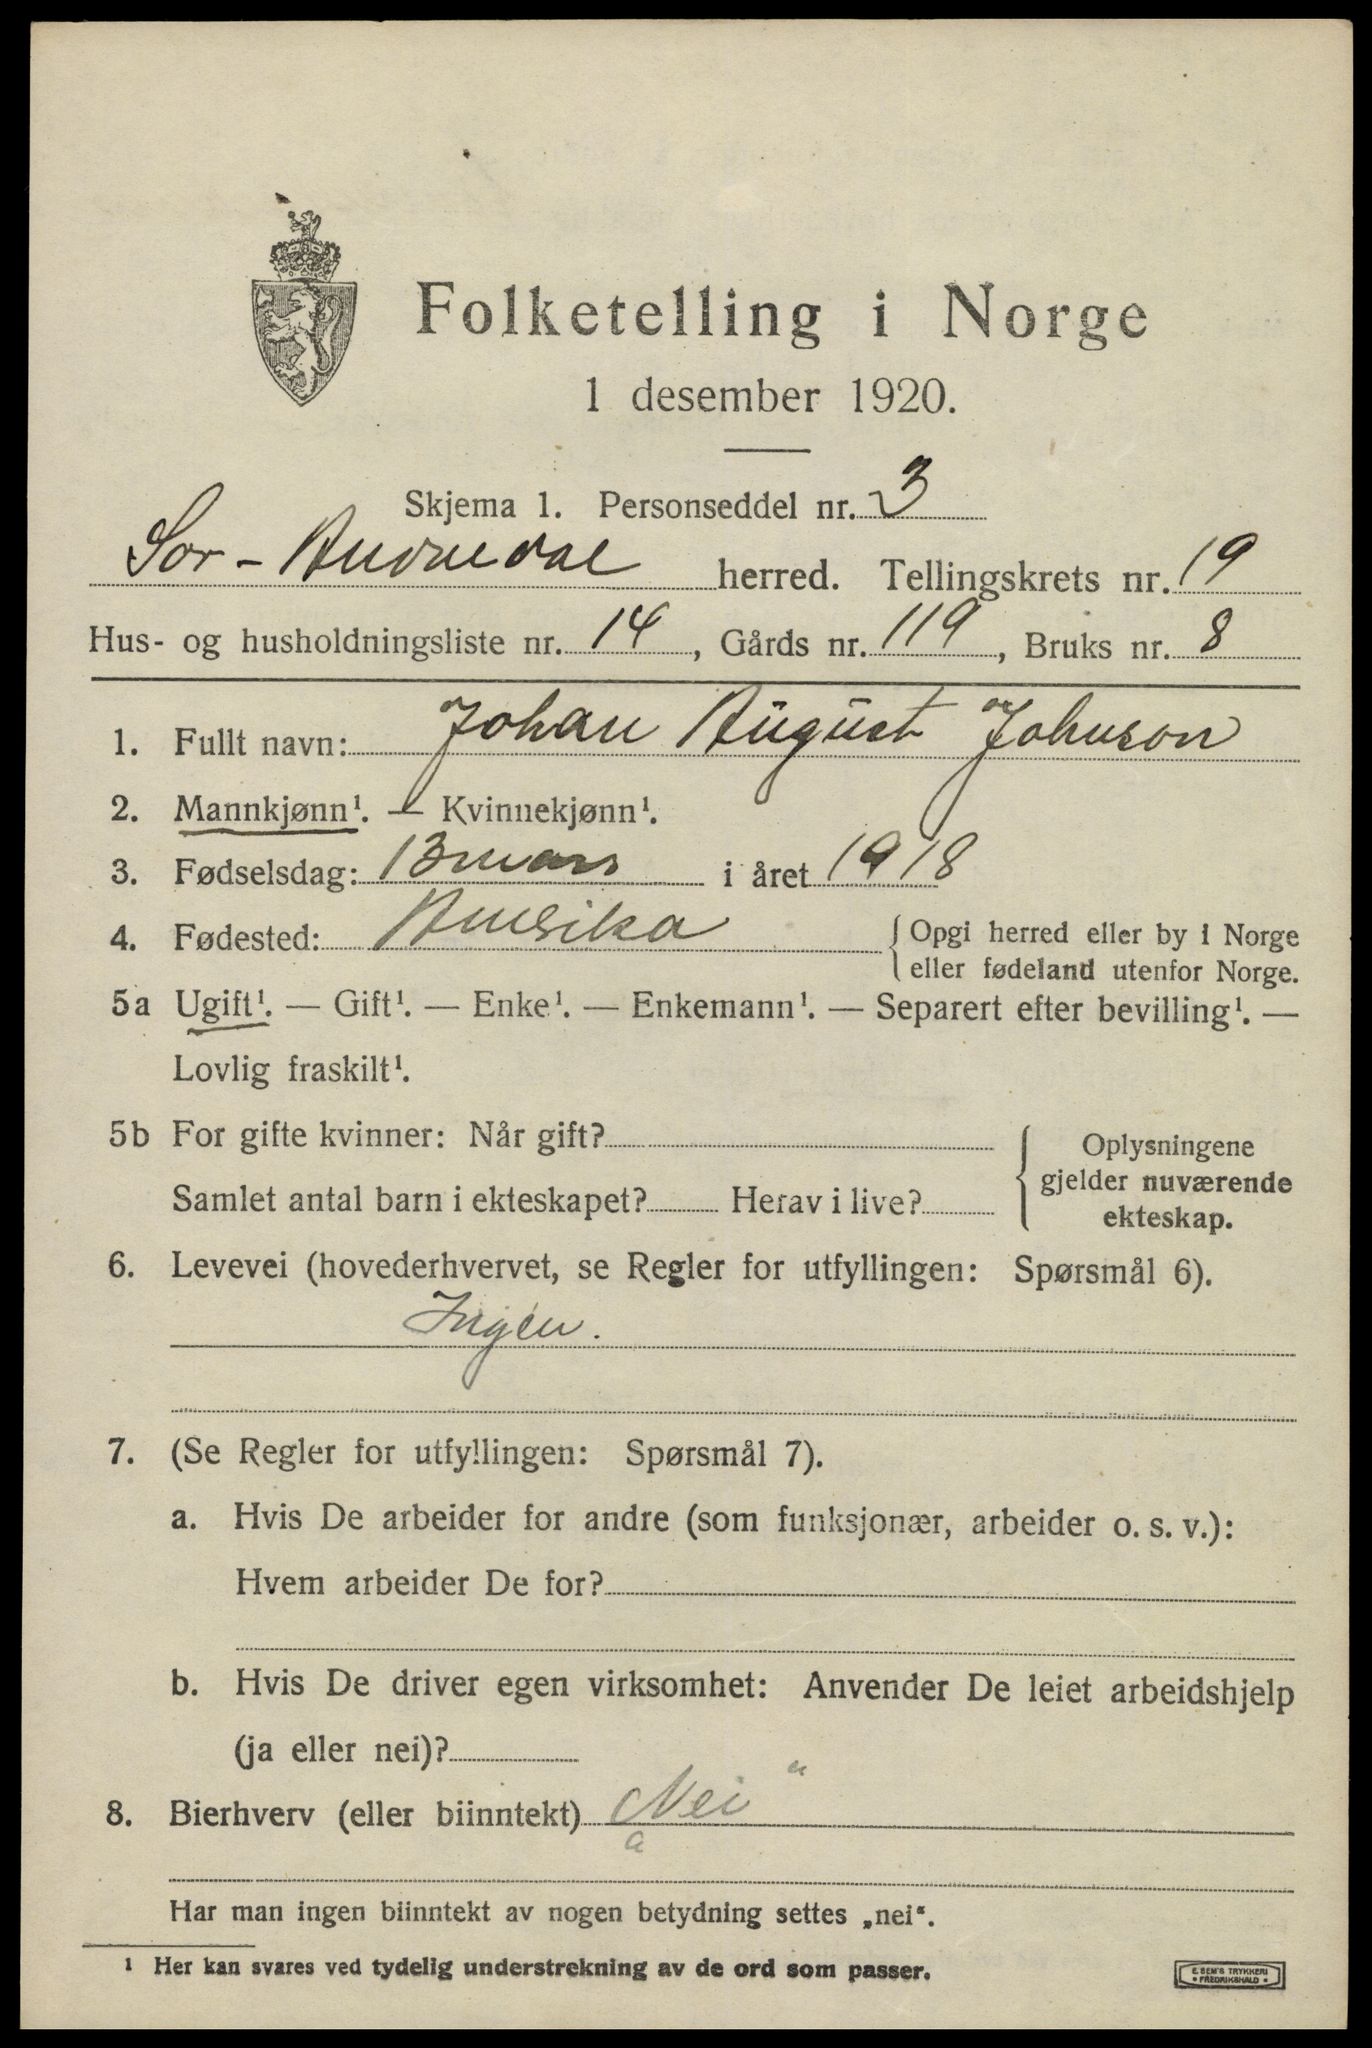 Folketelling i Norge
1 desember 1920.
Skjema 1. Personseddel nr. 3
Sør-Audnedal herred. Tellingskrets nr. 19
Hus- og husholdningsliste nr. 14, Gårds nr. 119, Bruks nr. 8
1. Fullt navn: Johan August Johnson
2. Mannkjønn¹. — Kvinnekjønn¹.
3. Fødselsdag: 13 mars i året 1918
4. Fødested: Amerika { Opgi herred eller by i Norge
eller fødeland utenfor Norge.
5a Ugift¹. — Gift¹. — Enke¹. — Enkemann¹. — Separert efter bevilling¹. —
Lovlig fraskilt¹.
5b For gifte kvinner: Når gift?
Samlet antal barn i ekteskapet? Herav i live?
{ Oplysningene
gjelder nuværende
ekteskap.
6. Levevei (hovederhvervet, se Regler for utfyllingen: Spørsmål 6).
Ingen.
7. (Se Regler for utfyllingen: Spørsmål 7).
a. Hvis De arbeider for andre (som funksjonær, arbeider o. s. v.):
Hvem arbeider De for?
b. Hvis De driver egen virksomhet: Anvender De leiet arbeidshjelp
(ja eller nei)?
8. Bierhverv (eller biinntekt) „Nei“
Har man ingen biinntekt av nogen betydning settes „nei“.
¹ Her kan svares ved tydelig understrekning av de ord som passer.
E. SEM'S TRYKKERI
• FREDRIKSHALD •